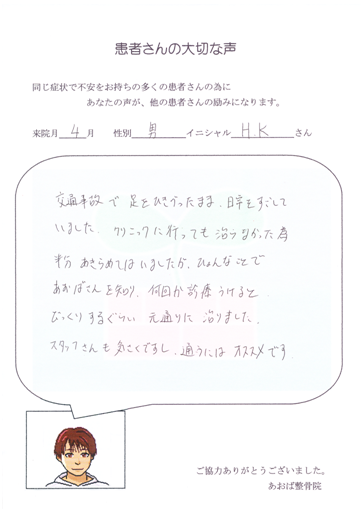 患者さんの大切な声
同じ症状で不安をお持ちの多くの患者さんの為に
あなたの声が、他の患者さんの励みになります。
来院月 4 月 性別 男 イニシャル H.K さん
交通事故で 足をひきづったまま、日常をすごして
いました。クリニックに行っても 治らなかった為
半分 あきらめてはいましたが、ひょんなことで
あおばさんを知り、何回か診療うけると
びっくりするぐらい 元通りに 治りました。
スタッフさんも 気さくですし、通うには オススメです
ご協力ありがとうございました。
あおば整骨院